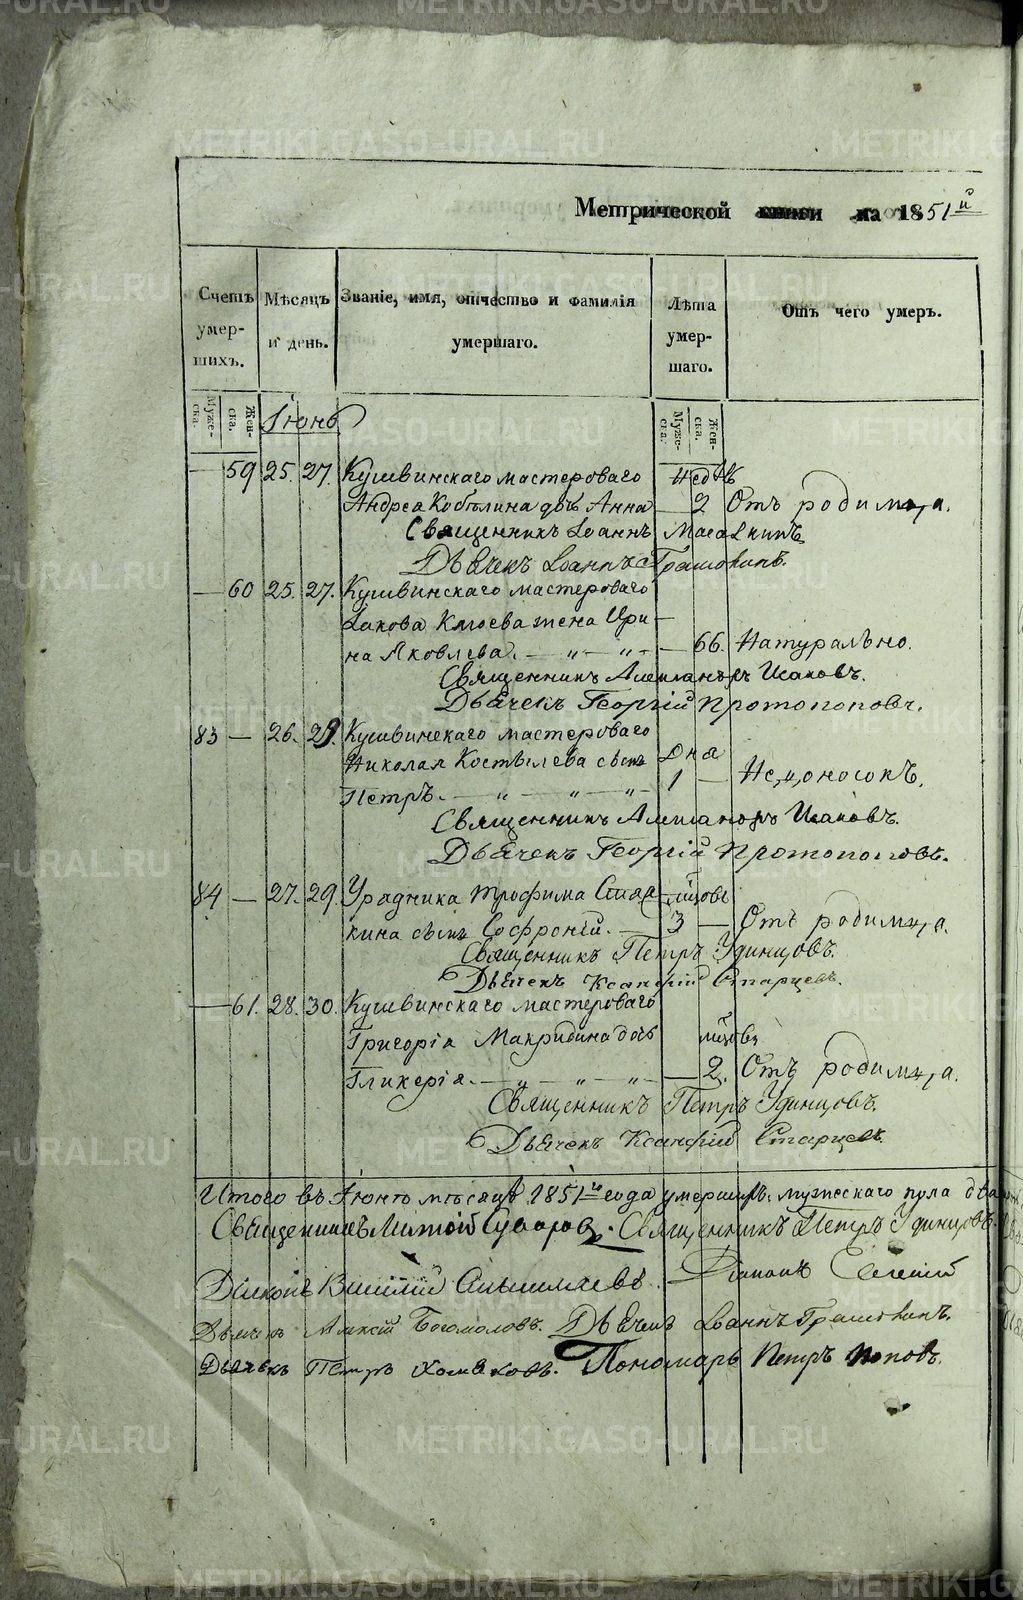 METRIKI.GASO-URAL.RU
Метрической книги на 1851й
Счетъ умер-шихъ.
Мѣсяцъ и день.
Званіе, имя, отчество и фамилія умершаго.
Лѣта умер-шаго.
Отъ чего умеръ.
Муже-ска. Жен-ска. Іюнь Муже-ска. Жен-ска.
— 59 25. 27. Кушвинскаго мастероваго недѣль
Андрея Кобѣлина дочь Анна — 2 Отъ родимца.
Священникъ Іоаннъ
Дьячекъ Іоаннъ
— 60 25. 27. Кушвинскаго мастероваго
Іакова жена Ири-
на Яковлева. — „ — „ — — 66. Натурально.
Священникъ Александръ Исаковъ.
Дьячекъ Георгій Протопоповъ.
83 — 26. 29. Кушвинскаго мастероваго
Николая Костылева сынъ дня
Петръ. — „ — „ — „ 1 — Недоносокъ.
Священникъ Александръ Исаковъ.
Дьячекъ Георгій Протопоповъ.
84 — 27. 29. Урядника Трофима мѣсяцовъ
кина сынъ Софроній. — 3 — Отъ родимца.
Священникъ Петръ Удинцовъ.
Дьячекъ Ксанфій Старцевъ.
— 61. 28. 30. Кушвинскаго мастероваго
Григорія Макридина дочь мѣсяцовъ
Гликерія. — „ — „ — „ — 2. Отъ родимца.
Священникъ Петръ Удинцовъ.
Дьячекъ Ксанфій Старцевъ.
Итого въ Іюнѣ мѣсяцѣ 1851го года умершихъ: мужескаго пола два
Священникъ Суворовъ. Священникъ Петръ Удинцовъ.
Діаконъ Василій Діаконъ Евгеній
Дьячекъ Алексій Богомоловъ. Дьячекъ Іоаннъ
Дьячекъ Петръ Хомяковъ. Пономарь Петръ Поповъ.